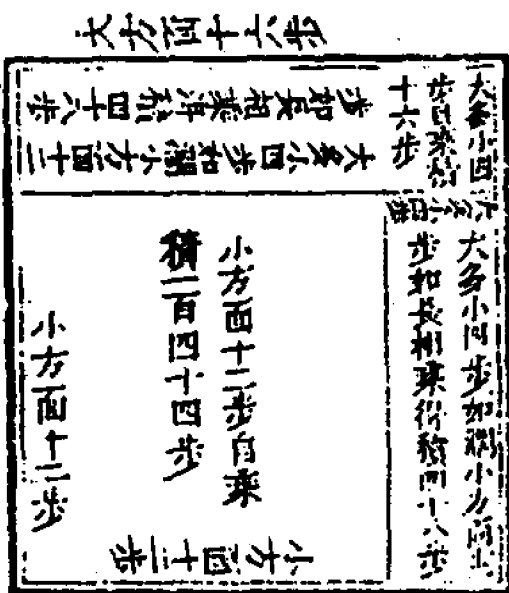 大方面十六步
大多小四
步自乘
十六步
大多小四步如濶小方面十二
步如長相乘得積四十八步
大多小四步
大多小四步如濶小方面十二
步如長相乘得積四十八步
小方面十二步自乘
積一百四十四步
小方面十二步
小方面十二步